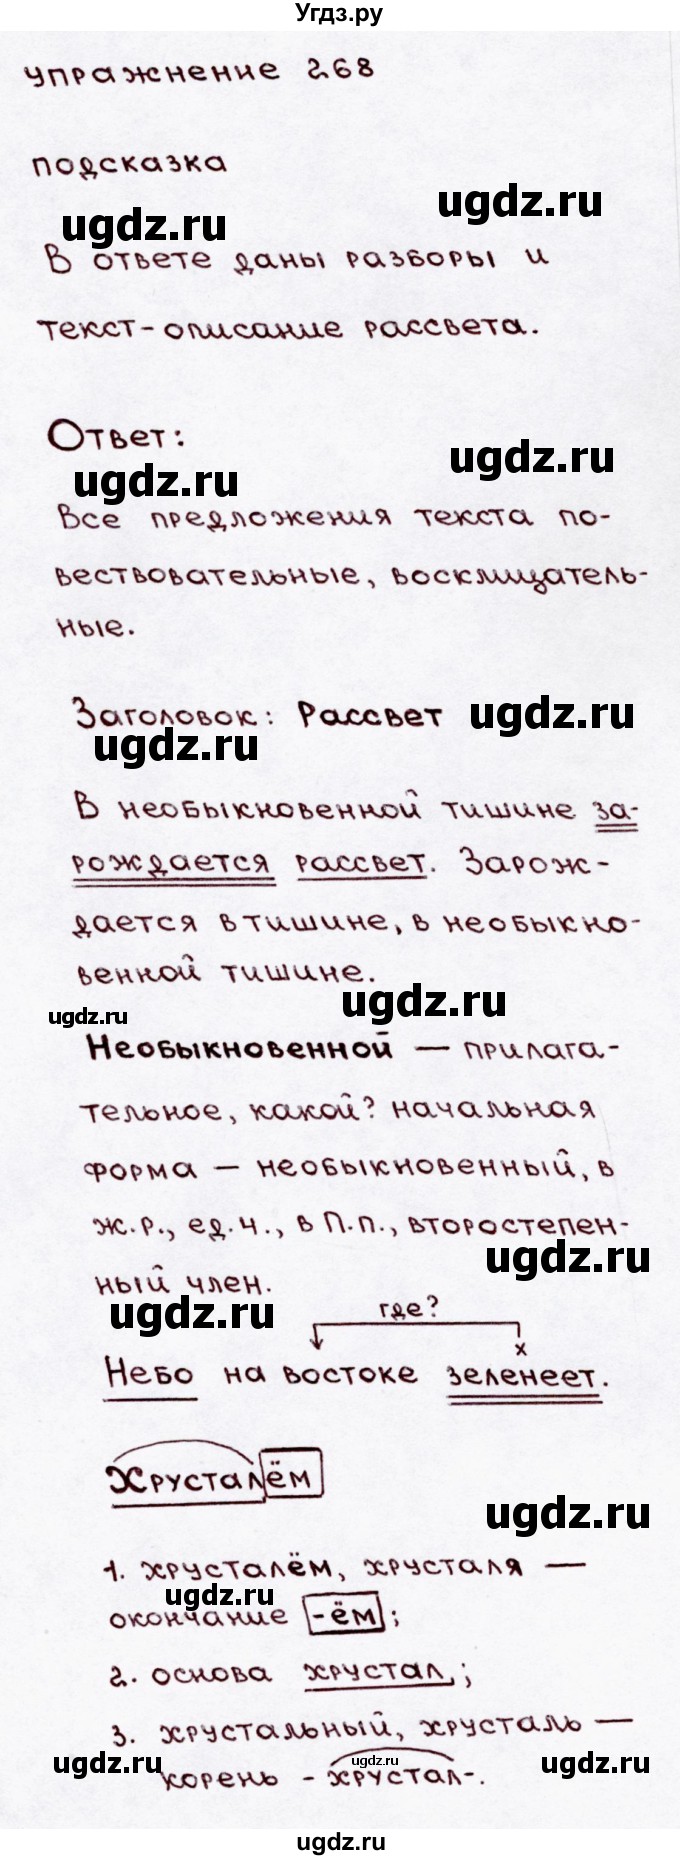 Угдз.ру
упражнение 268
подсказка
ugdz.ru
ugdz.ru
В ответе даны разборы и
текст-описание рассвета.
Ответ:
ugdz.ru
ugdz.ru
Все предложения текста по-
вествовательные, восклицатель-
ные.
Заголовок: Рассвет ugdz.ru
ugdz.ru
В необыкновенной тишине за-
рождается рассвет. Зарож-
дается в тишине, в необыкно-
венной тишине.
ugdz.ru
ugdz.ru
Необыкновенной — прилага-
тельное, какой? начальная
форма — необыкновенный, в
ж.р., ед.ч., в П.п., второстепен-
ugdz.ru
ный член.
ugdz.ru
где?
х
Небо на востоке зеленеет.
Хрусталём
ugdz.ru
1. хрусталём, хрусталя —
ugdz.ru
окончание -ём;
2. основа хрустал;
3. хрустальный, хрусталь —
ugdz.ru
ugdz.ru
ugdz.ru
корень - хрустал-.
ugdz.ru